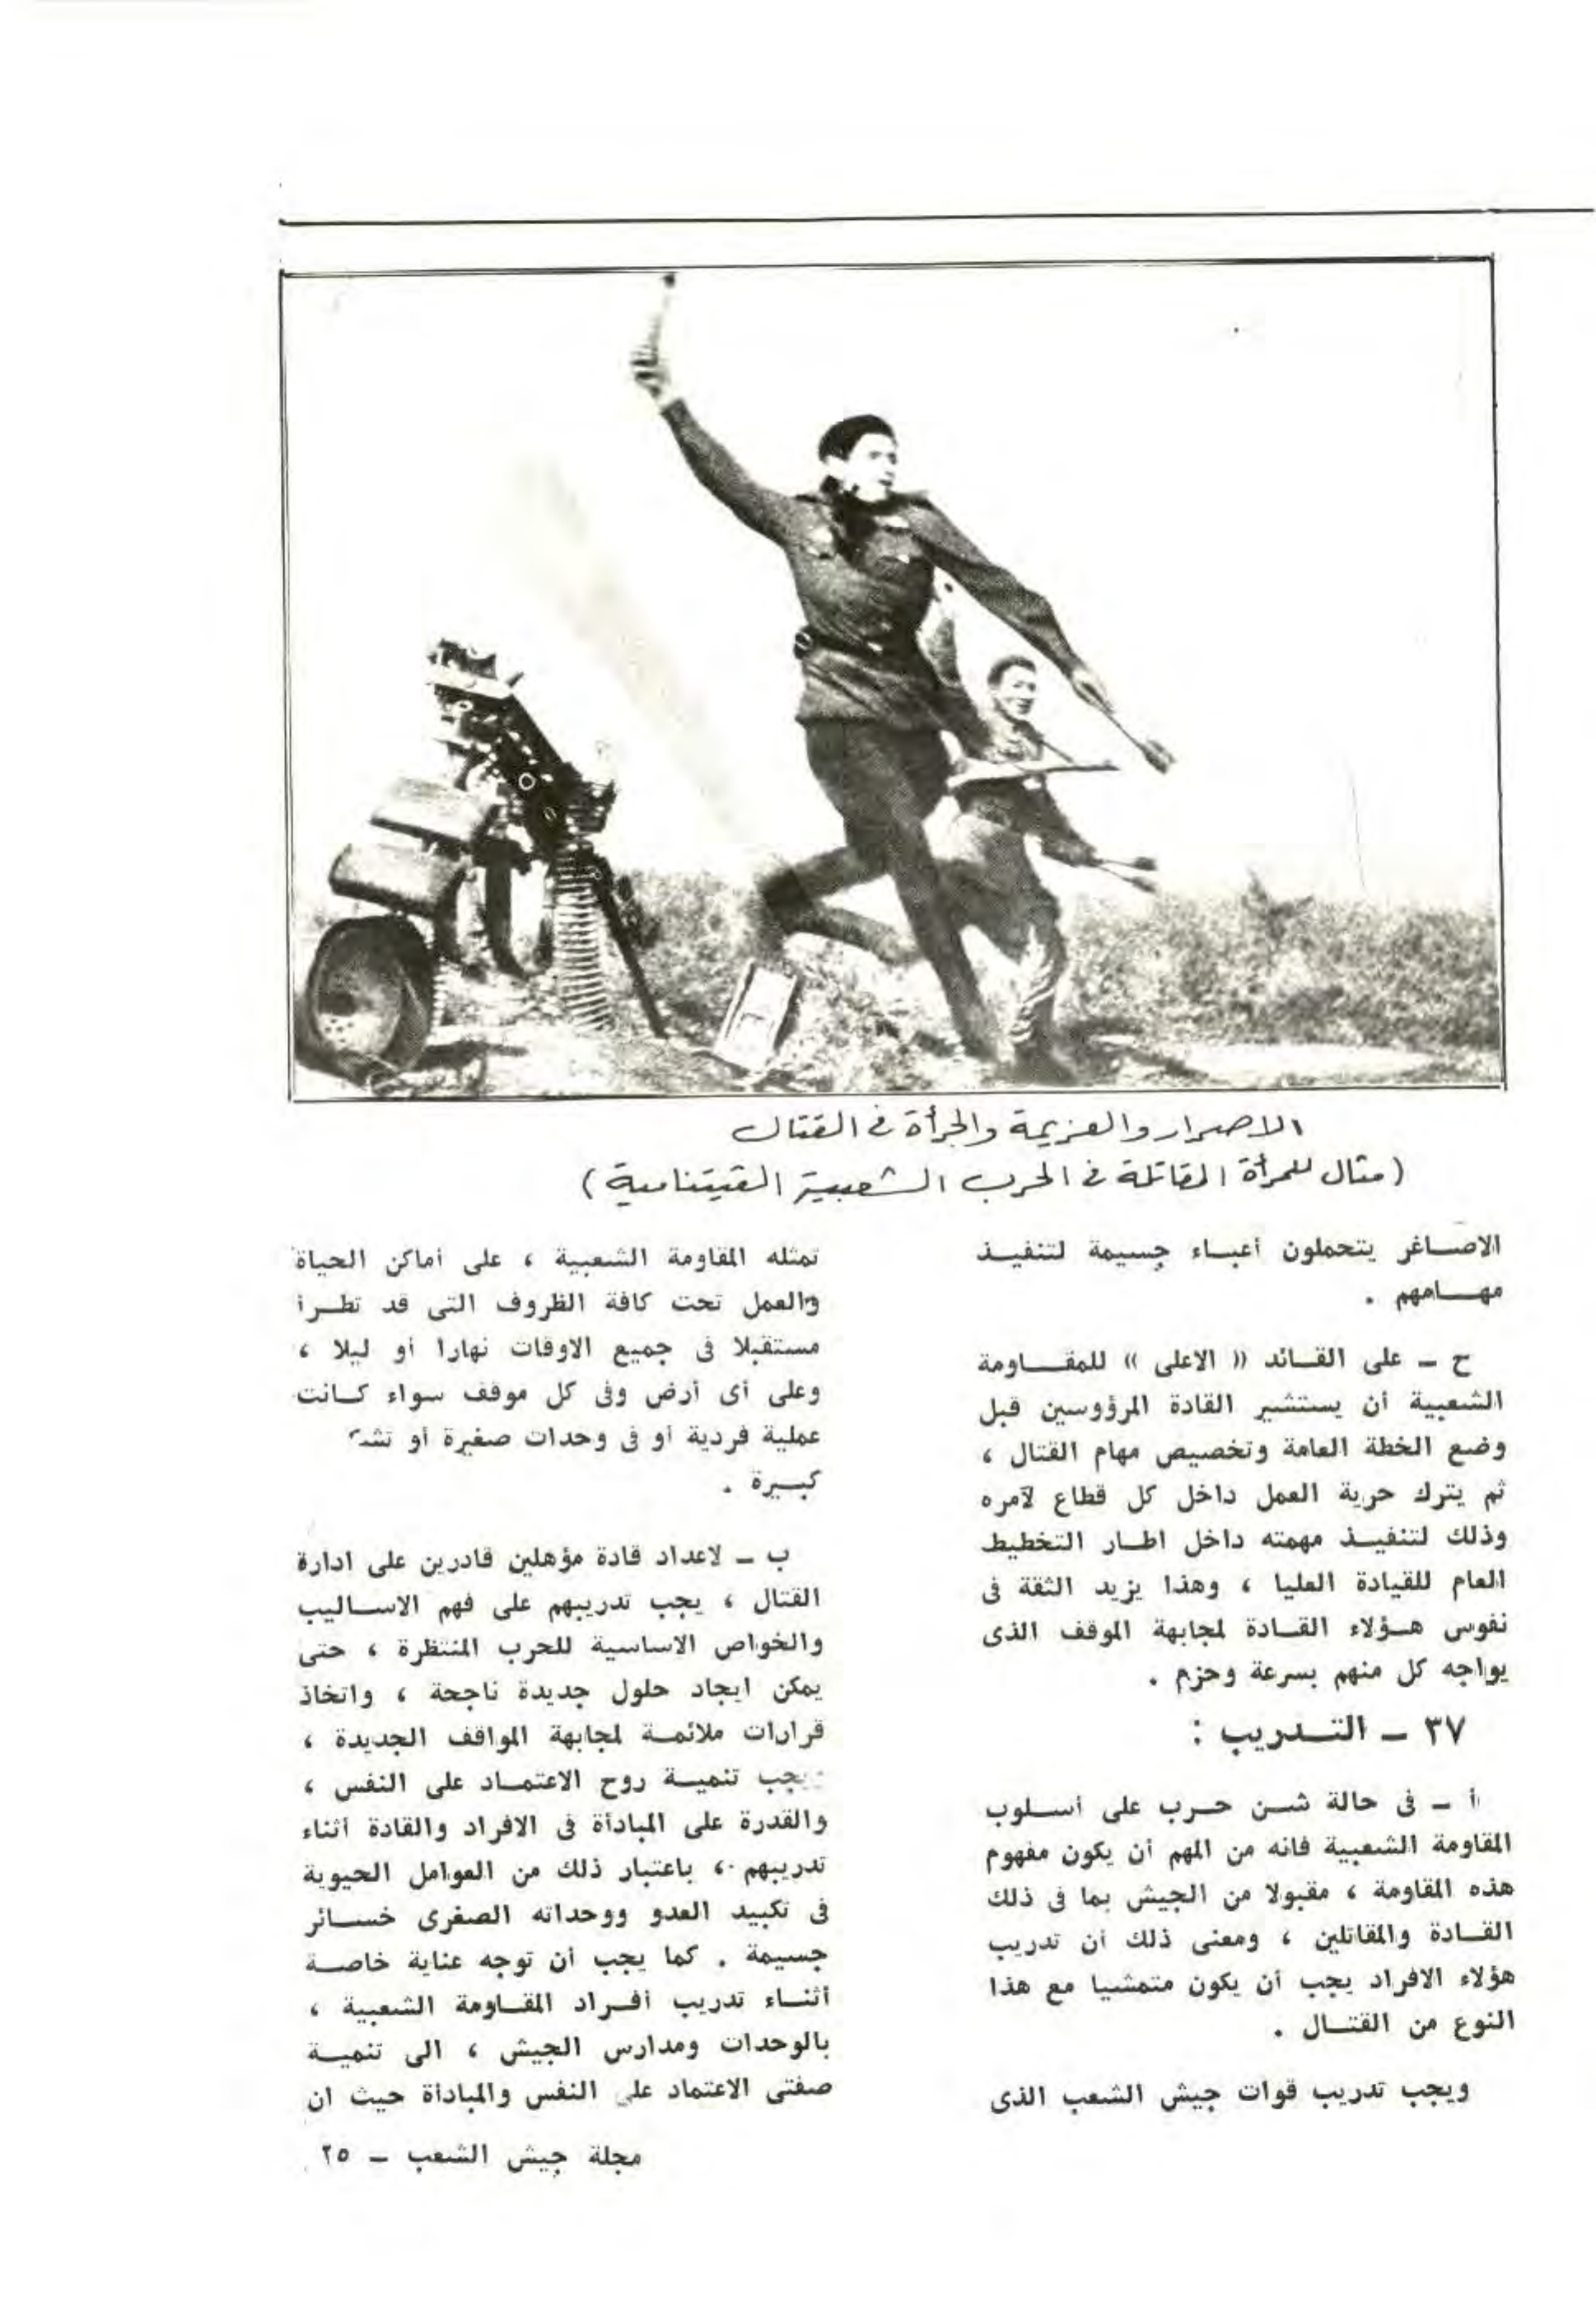 الاصرار والعزيمة والجرأة في القتال
(مثال للمرأة المقاتلة في الحرب الشعبية الفيتنامية)
الاصـــاغر يتحملون أعبـــاء جسيمة لتنفيـــذ
مهـــامهم .
ح ــ على القـــائد « الاعلى » للمقـــاومة
الشعبية أن يستشير القادة المرؤوسين قبل
وضع الخطة العامة وتخصيص مهام القتال ،
ثم يترك حرية العمل داخل كل قطاع لآمره
وذلك لتنفيـــذ مهمته داخل اطـــار التخطيط
العام للقيادة العليا ، وهذا يزيد الثقة فى
نفوس هـــؤلاء القـــادة لمجابهة الموقف الذى
يواجه كل منهم بسرعة وحزم .
٣٧ ــ التـــدريب :
أ ــ فى حالة شـــن حـــرب على أســـلوب
المقاومة الشعبية فانه من المهم أن يكون مفهوم
هذه المقاومة ، مقبولا من الجيش بما فى ذلك
القـــادة والمقاتلين ، ومعنى ذلك أن تدريب
هؤلاء الافراد يجب أن يكون متمشيا مع هذا
النوع من القتـــال .
ويجب تدريب قوات جيش الشعب الذى
تمثله المقاومة الشعبية ، على أماكن الحياة
والعمل تحت كافة الظروف التى قد تطـــرأ
مستقبلا فى جميع الاوقات نهارا أو ليلا ،
وعلى أى أرض وفى كل موقف سواء كـــانت
عملية فردية أو فى وحدات صغيرة أو
كبـــيرة .
ب ــ لاعداد قادة مؤهلين قادرين على ادارة
القتال ، يجب تدريبهم على فهم الاســـاليب
والخواص الاساسية للحرب المنتظرة ، حتى
يمكن ايجاد حلول جديدة ناجحة ، واتخاذ
قرارات ملائمـــة لمجابهة المواقف الجديدة ،
ويجب تنميـــة روح الاعتمـــاد على النفس ،
والقدرة على المبادأة فى الافراد والقادة أثناء
تدريبهم ، باعتبار ذلك من العوامل الحيوية
فى تكبيد العدو ووحداته الصغرى خســـائر
جسيمة . كما يجب أن توجه عناية خاصـــة
أثنـــاء تدريب أفـــراد المقـــاومة الشعبية ،
بالوحدات ومدارس الجيش ، الى تنميـــة
صفتى الاعتماد على النفس والمبادأة حيث ان
مجلة جيش الشعب ــ ٢٥